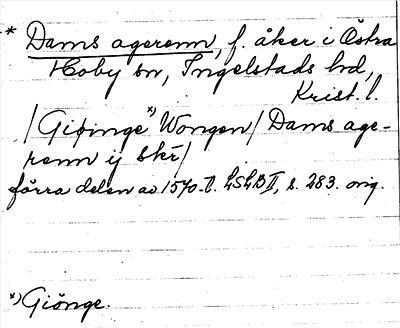 * Dams agerenn, f. åker i Östra
Hoby sn, Ingelstads hd,
Krist. l.
/Giöinge *) Wongen/ Dams age-
renn ij Skr/
förra delen av 1570-t. LSLB II, s. 283. orig.
*) Giönge.